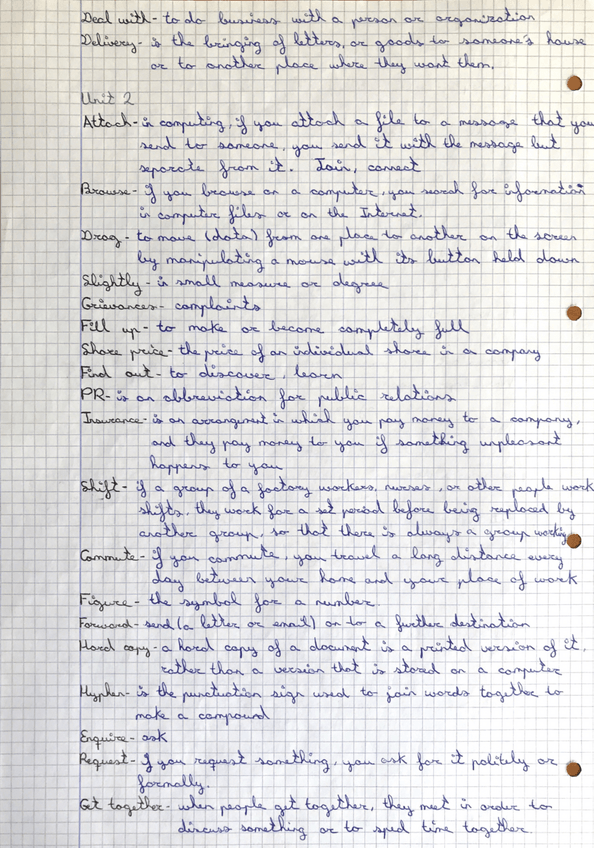 Deal with - to do business with a person or organization
Delivery - is the bringing of letters, or goods to someone's house
or to another place where they want them.
Unit 2
Attach - in computing, if you attach a file to a message that you
send to someone, you send it with the message but
separate from it. Join, connect
Browse - If you browse on a computer, you search for information
in computer files or on the Internet.
Drag - to move (data) from one place to another on the screen
by manipulating a mouse with its button held down
Slightly - in small measure or degree
Grievances - complaints
Fill up - to make or become completely full
Share price - the price of an individual share in a company
Find out - to discover, learn
PR - is an abbreviation for public relations
Insurance - is an arrangement in which you pay money to a company,
and they pay money to you if something unpleasant
happens to you
Shift - if a group of a factory workers, nurses, or other people work
shifts, they work for a set period before being replaced by
another group, so that there is always a group working.
Commute - if you commute, you travel a long distance every
day between your home and your place of work
Figure - the symbol for a number
Forward - send (a letter or email) on to a further destination
Hard copy - a hard copy of a document is a printed version of it,
rather than a version that is stored on a computer
Hyphen - is the punctuation sign used to join words together to
make a compound
Enquire - ask
Request - if you request something, you ask for it politely or
formally.
Get together - when people get together, they meet in order to
discuss something or to spend time together.